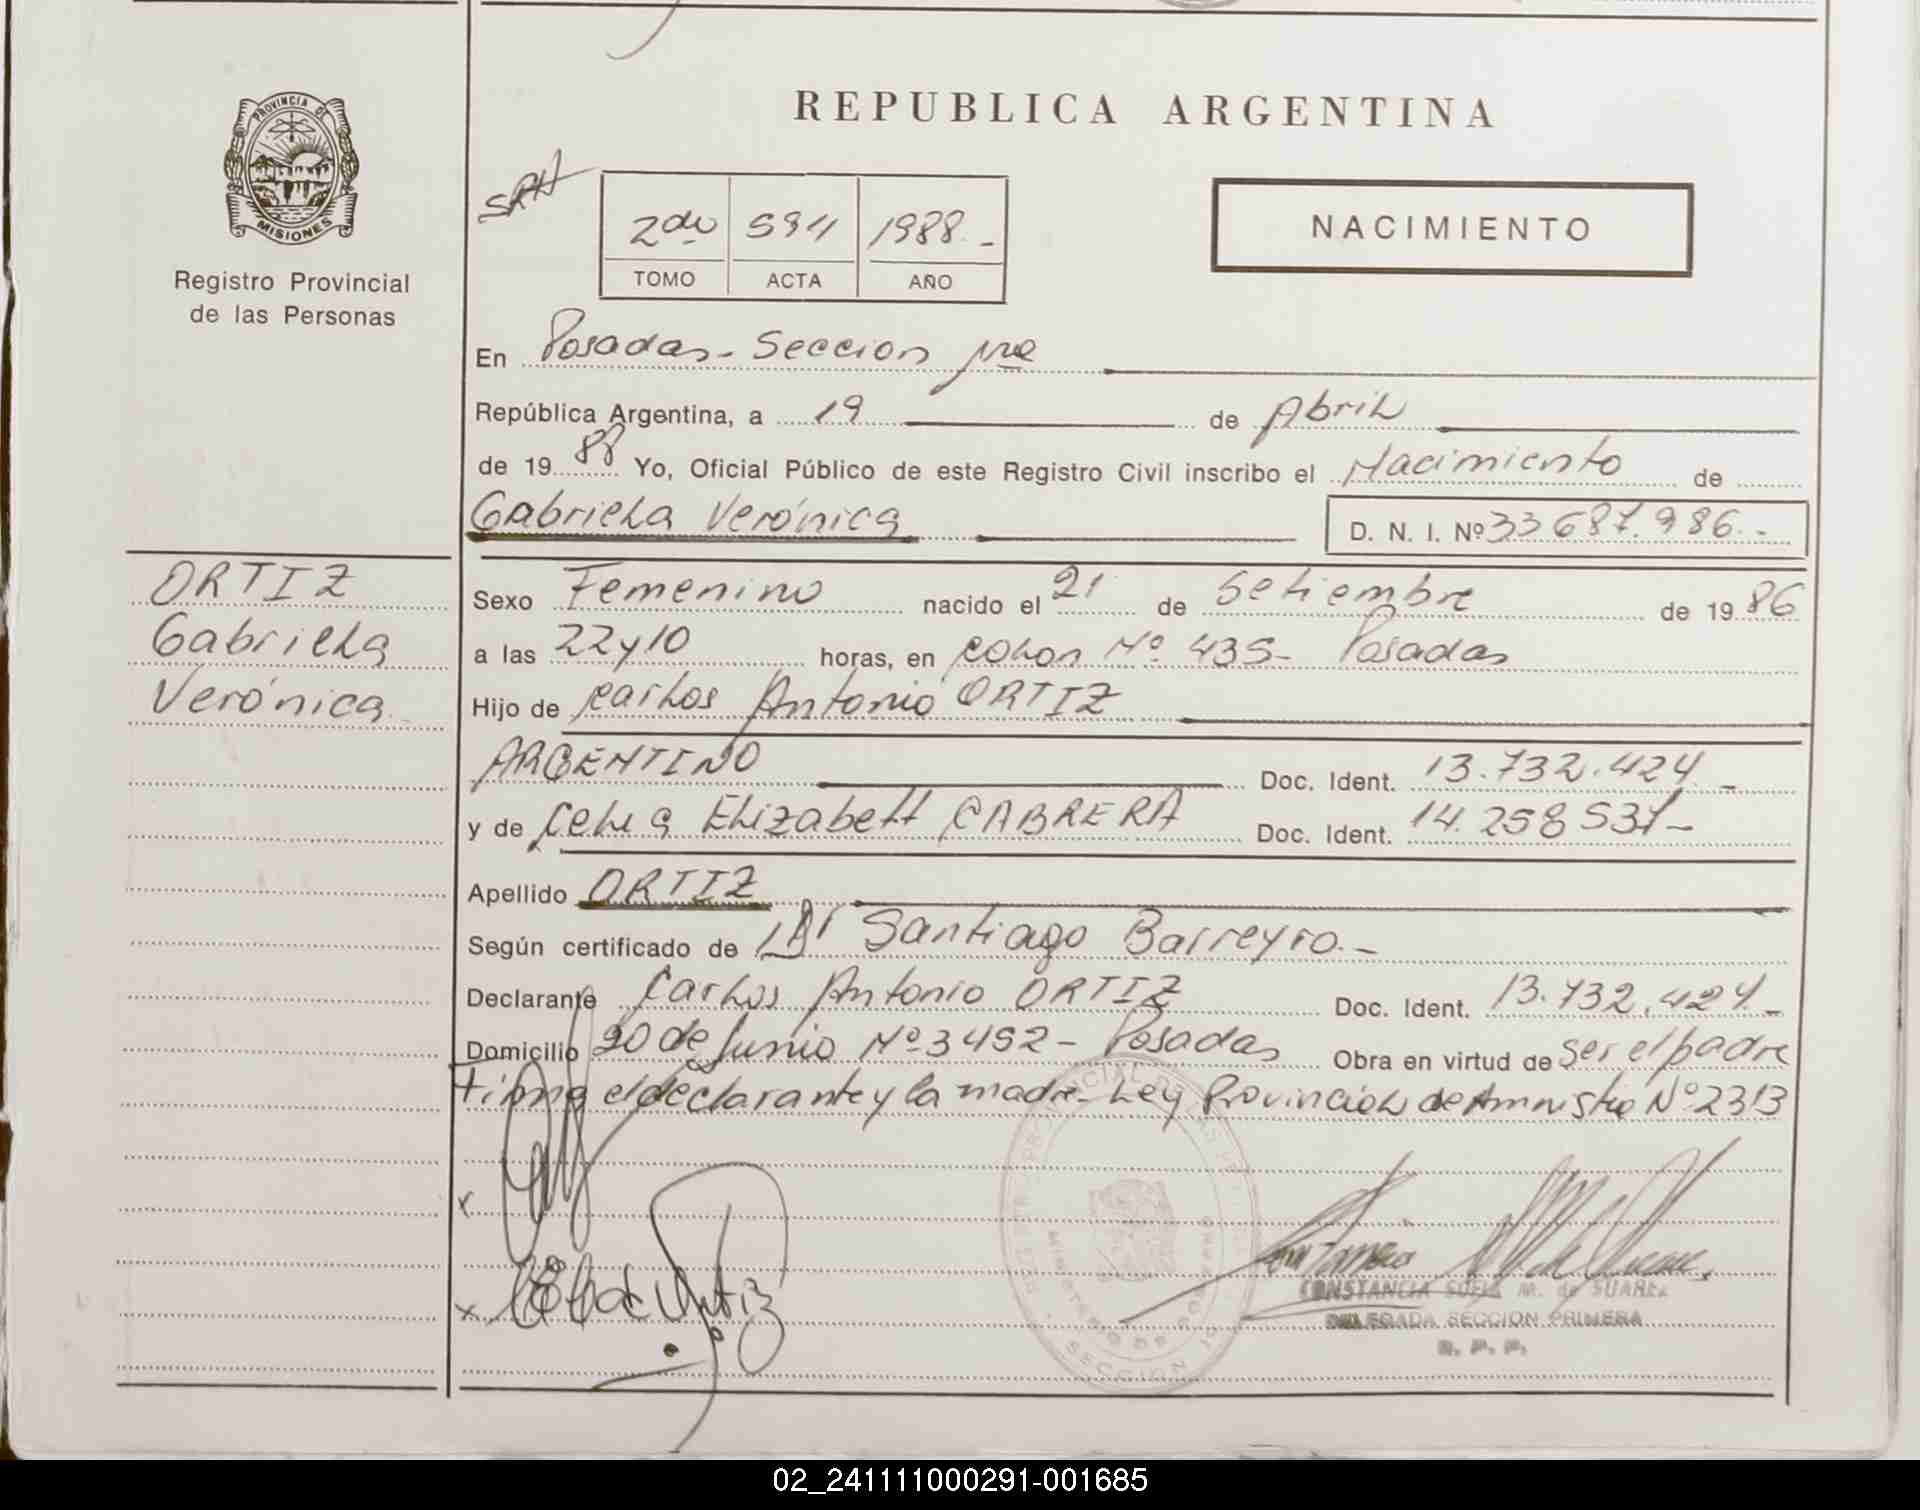 REPUBLICA ARGENTINA
PROVINCIA DE
MISIONES
Registro Provincial
de las Personas
2do 594 1988.-
TOMO ACTA AÑO
NACIMIENTO
En Posadas- Seccion 1ra
República Argentina, a 19 de Abril
de 1988 Yo, Oficial Público de este Registro Civil inscribo el Nacimiento de
Gabriela Verónica D. N. I. Nº 33687.986.-
ORTIZ
Gabriela
Verónica
Sexo Femenino nacido el 21 de Setiembre de 1986
a las 22y10 horas, en Colon Nº 435- Posadas
Hijo de Carlos Antonio ORTIZ
ARGENTINO Doc. Ident. 13.732.424.-
y de Celia Elizabett CABRERA Doc. Ident. 14.258531-
Apellido ORTIZ
Según certificado de Santiago Barreyro.-
Declarante Carlos Antonio ORTIZ Doc. Ident. 13.732.424.-
Domicilio 20 de Junio Nº 3452- Posadas Obra en virtud de ser el padre
Firma el declarante y la madre- Ley Provincial de Amnistia Nº 2313
x
x
CONSTANCIA SOFIA M. de SUAREZ
DELEGADA SECCION PRIMERA
R. P. P.
02_241111000291-001685